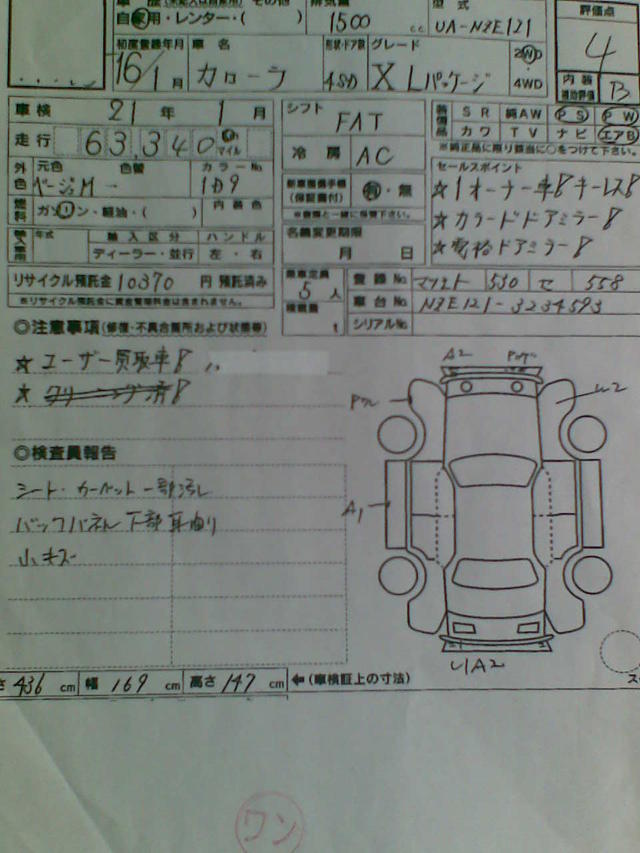 自家用・レンタ・( ) 1500 cc UA-NZE121 評価点
初度登録年月 車名 形状・ドア数 グレード 2WD 4
16/1月 カローラ 4SD X Lパッケージ 4WD 内装 B
車検 21年 1月 シフト FAT SR 純AW PS PW
走行 63,340 マイル 冷房 AC カワ TV ナビ エアB
※純正品に限り該当に○をつけて下さい。
外色 元色 色替 カラーNo. セールスポイント
ベージュM 1D9 有・無 ☆1オーナー車 キーレス
燃料 ガソリン・軽油・( ) 内装色 ☆カラードドアミラー
年式 輸入区分 ハンドル 名義変更期限 ☆電格ドアミラー
ディーラー・並行 左・右 月 日
リサイクル預託金 10370 円 預託済み 乗車定員 5人 登録No. 530 558
※リサイクル預託金に資金管理料金は含まれません。 積載量 t 車台No. NZE121-3234593
シリアルNo.
◎注意事項(修復・不具合箇所および状態等)
☆ ユーザー買取車
☆ クリーニング済
A2
◎検査員報告
シート・カーペット一部汚れ
A1
バックパネル下部耳曲り
小キズ
U1A2
436 cm 幅 169 cm 高さ 147 cm ←(車検証上の寸法)
ワン